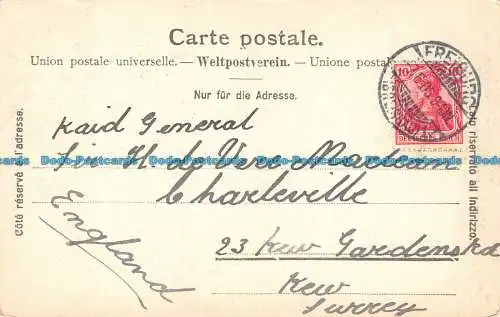 Carte postale.
Union postale universelle. — Weltpostverein. — Unione postale
Nur für die Adresse.
Côté réservé à l'adresse.
riservato all indirizzo.
FREIBURG
10 10
Kaid General
Sir H. de Vere Maclean
Charleville
23 Kew Gardens Rd
Kew
Surrey
England
Dodo-Postcards Dodo-Postcards Dodo-Postcards Dodo-Postcards Dodo-Postcards